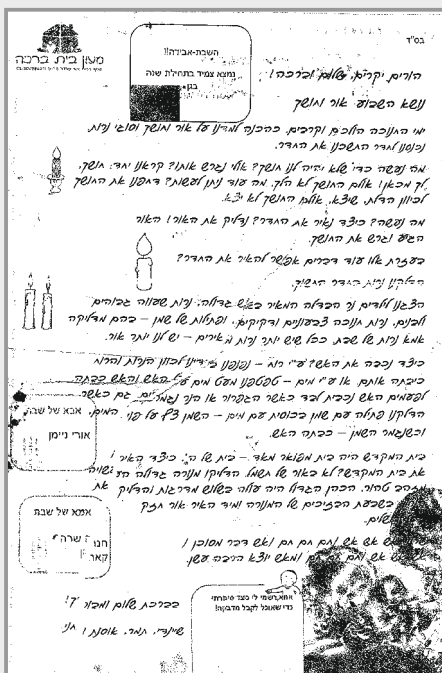 בס"ד
מעון בית ברכה
השבת-אבידה!!
נמצא צמיד בתחילת שנה
בגן
הורים יקרים, שלום וברכה!
נושא השבוע: אור וחושך
ימי החנוכה הולכים וקרבים. כהכנה למדנו על אור וחושך וסוגי נרות.
נכנסנו לחדר החשכנו את החדר.
מה נעשה כדי שלא יהיה לנו חושך? אולי נגרש אותו? קראנו יחד: חושך,
לך מכאן! אולם החושך לא הלך. מה עוד ניתן לעשות? דחפנו את החושך
לכיוון הדלת, שיצא. אולם החושך לא יצא.
מה נעשה? כיצד נאיר את החדר? נדליק את האור! האור
הגיע וגרש את החושך.
בעזרת אלו עוד דברים אפשר להאיר את החדר?
הדלקנו נרות בחדר החשוך.
הצגנו לילדים נר הבדלה המאיר באש גדולה, נרות שעווה גבוהים
ולבנים, נרות חנוכה צבעוניים ודקיקים, ופתילות של שמן – בהם מדליקה
אמא נרות של שבת. ככל שיש יותר נרות מאירים – יש לנו יותר אור.
כיצד נכבה את האש? ע"י רוח – נפנפנו בידינו לכוון הנרות והרוח
כיבתה אותם. או ע"י מים – טפטפנו מעט מים על האש והאש כבתה
לפעמים האש נכבית לבד כאשר הגפרור או הנר נגמרים. גם כאשר
הדלקנו פתילה עם שמן בכוסית עם מים – השמן צף על פני המים,
וכשנגמר השמן – כבתה האש.
בית המקדש היה בית מפואר מאד – בית של ה'. כיצד האירו
את בית המקדש? לא באור של חשמל. הדליקו מנורה גדולה
מזהב טהור. הכהן הגדול היה עולה בשלוש מדרגות והדליק את
בשבעת הבזיכים של המנורה ומיד האיר אור חזק
אש אש אש חם חם חם ואש דבר מסוכן
ומאש יוצא הרבה עשן
אבא של שבת
אורי ניימן
אמא של שבת
חנו
שרה
קאר
אמא, רשמי לי כיצד סיפרתי
כדי שאוכל לקבל מדבקה!
בברכת שלום ומבורך!
שיינדי, תמר, אוסנת וחני